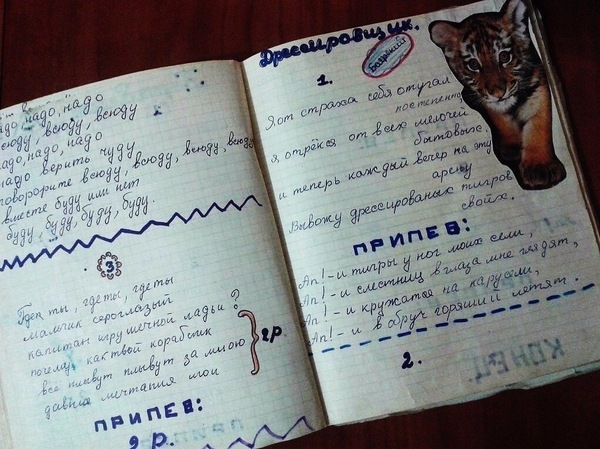 надо, надо
всюду, всюду, всюду
надо, надо, надо
надо верить чуду
говорорите всюду, всюду, всюду, всюду
вместе буду или нет
буду, буду, буду, буду.
3
Где ты, где ты, где ты
мальчик сероглазый
капитан игрушечной ладьи?
почему как твой кораблик
всё плывут плывут за мною
давние мечтания мои
2р
ПРИПЕВ:
2 р.
Дрессировщик.
Боярский
1.
Я от страха себя отучал
постепенно,
я отрёкся от всех мелочей
бытовых,
и теперь каждый вечер на эту
арену
Вывожу дрессированых тигров
свойх.
ПРИПЕВ:
Ап!-и тигры у ног моих сели,
Ап!-и слестниц в глаза мне глядят,
Ап!-и кружатся на карусели,
Ап!-и в обруч горящий летят.
2.